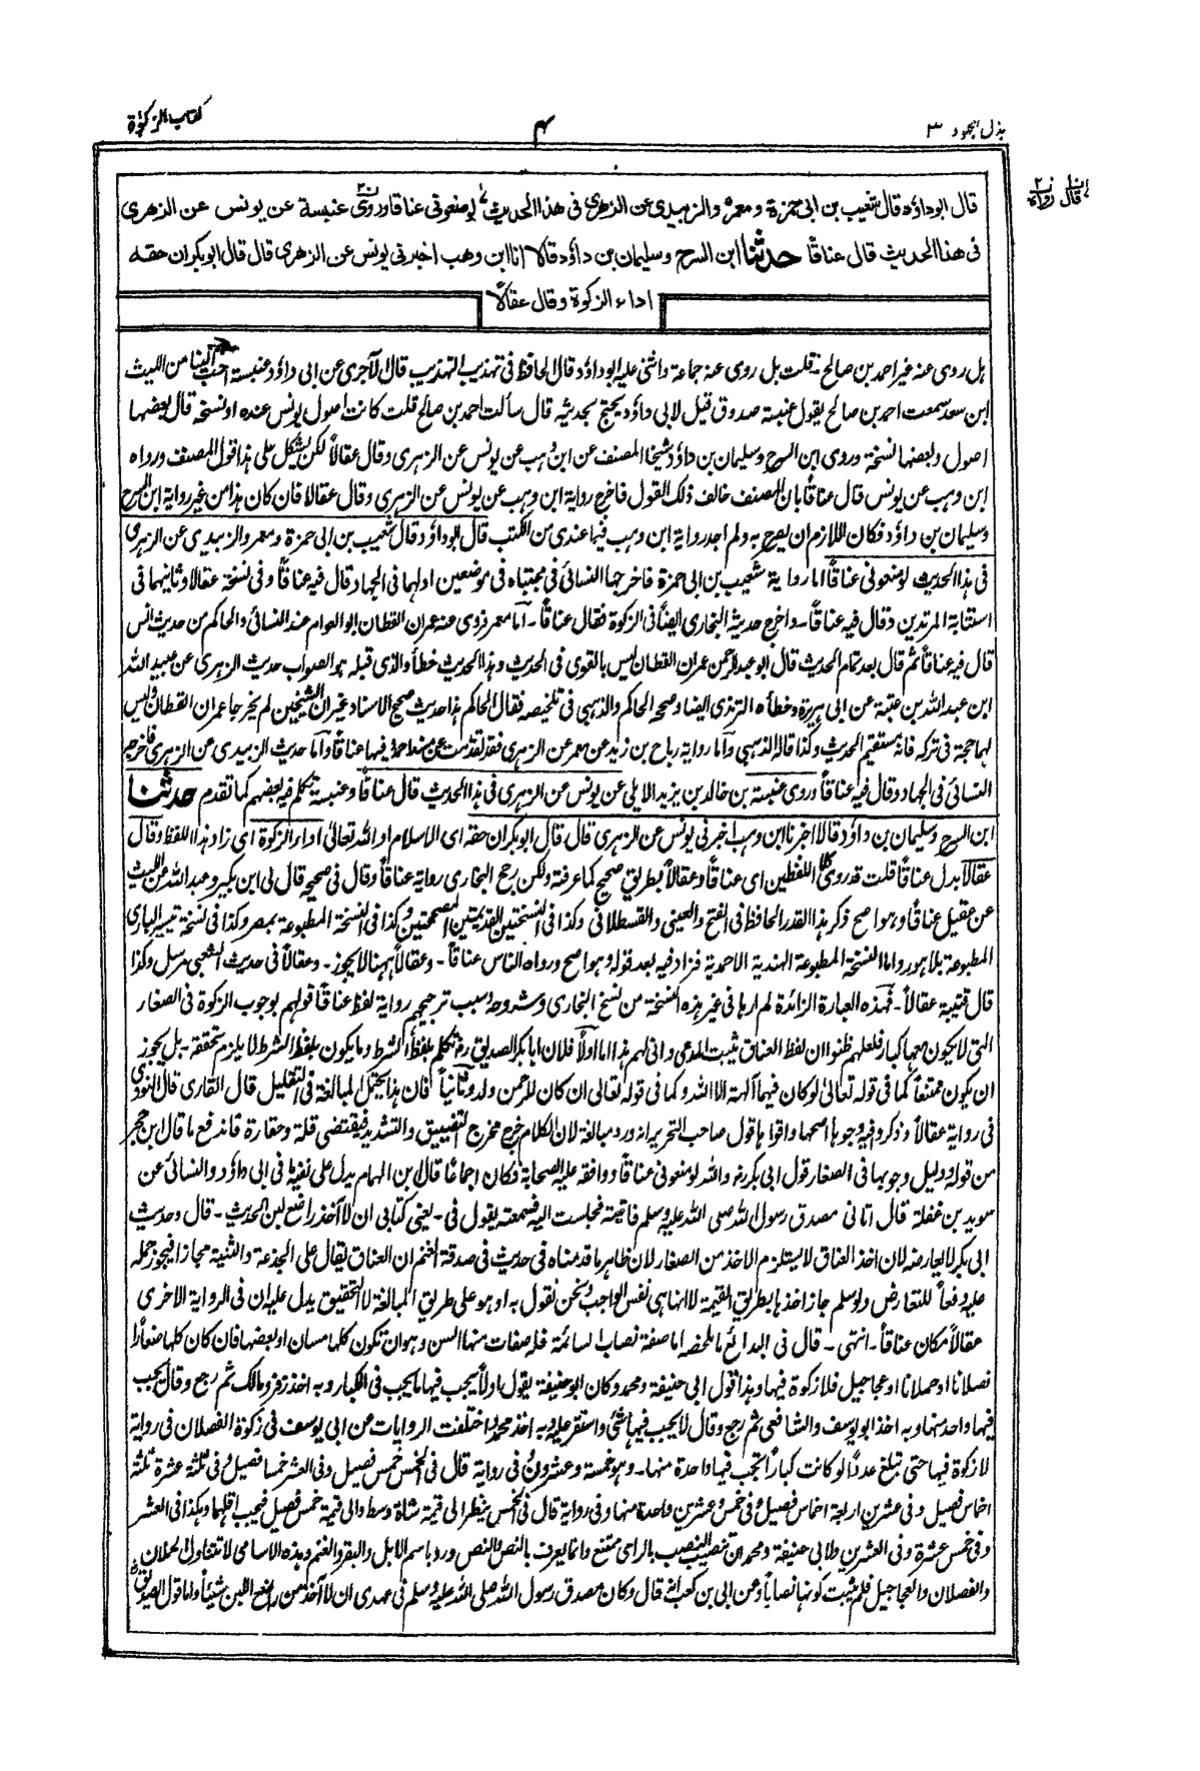 بذل المجهود ٣
٤
كتاب الزكوة
قال ابو داؤد قال شعيب بن ابى حمزة و معمر والزبيدى عن الزهرى فى هذا الحديث لو منعونى عناقا وروى عنبسة عن يونس عن الزهرى
فى هذا الحديث قال عناقاً حدثنا ابن السرح وسليمان بن داؤد قالا انا ابن وهب اخبرنى يونس عن الزهرى قال قال ابوبكر ان حقه
اداء الزكوة وقال عقالاً
بل روى عنه غير احمد بن صالح ـ قلت بل روى عنه جماعة واثنى عليه ابو داؤد قال الحافظ فى تهذيب التهذيب قال الآجرى عن ابى داؤد عنبسة احب الينا من الليث
ابن سعد سمعت احمد بن صالح يقول عنبسة صدوق قيل لابى داؤد يحتج بحديثه قال سألت احمد بن صالح قلت كانت اصول يونس عنده او نسخة قال بعضها
اصول وبعضها نسخة وروى ابن السرح وسليمان بن داؤد شيخا المصنف عن ابن وهب عن يونس عن الزهرى وقال عقالاً لكن يشكل على هذا قول المصنف ورواه
ابن وهب عن يونس قال عناقاً بان المصنف خالف ذلك القول فاخرج رواية ابن وهب عن يونس عن الزهرى وقال عقالا فان كان هذا من غير رواية ابن السرح
وسليمان بن داؤد فكان اللازم ان يصرح به ولم اجد رواية ابن وهب فيما عندى من الكتب قال ابو داؤد قال شعيب بن ابى حمزة ومعمر والزبيدى عن الزهرى
فى هذا الحديث لو منعونى عناقاً اما رواية شعيب بن ابى حمزة فاخرجها النسائى فى مجتباه فى موضعين اولهما فى الجهاد قال فيه عناقاً وفى نسخة عقالا وثانيهما فى
استتابة المرتدين وقال فيه عناقاً ـ واخرج حديثه البخارى ايضاً فى الزكوة فقال عناقاً ـ اما معمر فروى عنه عمران القطان ابو العوام عند النسائى والحاكم من حديث انس
قال فيه عناقاً ثم قال بعد تمام الحديث قال ابو عبد الرحمن عمران القطان ليس بالقوى فى الحديث وهذا الحديث خطأ والذى قبله هو الصواب حديث الزهرى عن عبيد الله
ابن عبد الله بن عتبة عن ابى هريرة وخطأه الترمذى ايضا وصححه الحاكم والذهبى فى تلخيصه فقال الحاكم هذا حديث صحيح الاسناد غير ان الشيخين لم يخرجا عمران القطان وليس
لهما حجة فى تركه فانه مستقيم الحديث وكذا قاله الذهبى واما رواية رباح بن زيد عن معمر عن الزهرى فقد تقدمت عن مسند احمد فيها عناقاً واما حديث الزبيدى عن الزهرى فاخرجه
النسائى فى الجهاد وقال فيه عناقاً وروى عنبسة بن خالد بن يزيد الايلى عن يونس عن الزهرى فى هذا الحديث قال عناقاً وعنبسة تكلم فيه بعضهم كما تقدم حدثنا
ابن السرح وسليمان بن داؤد قالا اخبرنا ابن وهب اخبرنى يونس عن الزهرى قال قال ابوبكر ان حقه اى الاسلام او الله تعالى اداء الزكوة اى زاد هذا اللفظ وقال
عقالاً بدل عناقاً قلت قد روى كلا اللفظين اى عناقاً وعقالاً بطريق صحيح كما عرفته ولكن رجح البخارى رواية عناقاً وقال فى صحيحه قال لى ابن بكير وعبد الله عن الليث
عن عقيل عناقاً وهو اصح ذكر هذا القدر الحافظ فى الفتح والعينى والقسطلانى وكذا فى النسختين القديمتين المصححتين وكذا فى النسخة المطبوعة بمصر وكذا فى نسخة تيسير البارى
المطبوعة بلاهور واما النسخة المطبوعة الهندية الاحمدية فزاد فيه بعد قوله وهو اصح ورواه الناس عناقاً ـ وعقالاً ههنا لا يجوز ـ وعقالاً فى حديث الشعبى مرسل وكذا
قال قتيبة عقالاً ـ فهذه العبارة الزائدة لم ارها فى غير هذه النسخة من نسخ البخارى وشروحه وسبب ترجيحهم رواية لفظ عناقاً قولهم بوجوب الزكوة فى الصغار
التى لا يكون معها كبار فلعلهم ظنوا ان لفظ العناق يثبت المدعى وانى لهم هذا اما اولاً فلان ابا بكر الصديق رضـ تكلم بلفظ الشرط وما يكون بلفظ الشرط لا يلزم تحققه ـ بل يجوز
ان يكون ممتنعاً كما فى قوله تعالى لو كان فيهما آلهة الا الله وكما فى قوله تعالى ان كان للرحمن ولد وثانياً فان هذا يحتمل المبالغة فى التقليل قال القارى قال النووى
فى رواية عقالاً وذكروا فيه وجوها اصحها واقواها قول صاحب التحرير انه ورد مبالغة لان الكلام خرج مخرج التضييق والتشديد فيقتضى قلة وحقارة فاندفع ما قال ابن حجر
من قوله دليل وجوبها فى الصغار قول ابى بكر رضـ والله لو منعونى عناقاً ووافقه عليه الصحابة فكان اجماعًا قال ابن الهمام يدل على نفيه ما فى ابى داؤد والنسائى عن
سويد بن غفلة قال اتانى مصدق رسول الله صلى الله عليه وسلم فاتيته فجلست اليه فسمعته يقول فى ـ يعنى كتابى ان لا آخذ راضع لبن الحديث ـ قال وحديث
ابى بكر لا يعارضه لان اخذ العناق لا يستلزم الاخذ من الصغار لان ظاهر ما قدمناه فى حديث فى صدقة الغنم ان العناق يقال على الجذعة والثنية مجازا فيجوز حمله
عليه دفعاً للتعارض ولو سلم جاز اخذها بطريق القيمة لا انها هى نفس الواجب ونحن نقول به او هو على طريق المبالغة لا التحقيق يدل عليه ان فى الرواية الاخرى
عقالاً مكان عناقاً ـ انتهى ـ قال فى البدائع ما ملخصه اما صفة نصاب السائمة فله صفات منها السن وهو ان تكون كلها مسان او بعضها فان كان كلها صغاراً
فصلانا او حملانا او عجاجيل فلا زكوة فيها وهذا قول ابى حنيفة ومحمد وكان ابو حنيفة يقول اولاً يجب فيها ما يجب فى الكبار وبه اخذ زفر ومالك ثم رجع وقال يجب
فيها واحد منها وبه اخذ ابو يوسف والشافعى ثم رجع وقال لا يجب فيها شئ واستقر عليه وبه اخذ محمد واختلفت الروايات عن ابى يوسف فى زكوة الفصلان فى رواية
لا زكوة فيها حتى تبلغ عدداً لو كانت كباراً تجب فيها واحدة منها ـ وهو خمسة وعشرون وفى رواية قال فى الخمس خمس فصيل وفى العشر خمسا فصيل وفى ثلثة عشرة ثلثة
اخماس فصيل وفى عشرين اربعة اخماس فصيل وفى خمس وعشرين واحدة منها وفى رواية قال فى الخمس ينظر الى قيمة شاة وسط والى قيمة خمس فصيل فيجب اقلهما وهكذا فى العشر
وفى خمس عشرة وفى العشرين ولابى حنيفة ومحمد ان تنصيب النصب بالراى ممتنع وانما يعرف بالنص والنص ورد باسم الابل والبقر والغنم وهذه الاسامى لا تتناول الحملان
والفصلان والعجاجيل فلم يثبت كونها نصاباً وعن ابى بن كعب انه قال وكان مصدق رسول الله صلى الله عليه وسلم فى عهدى ان لا آخذ من راضع اللبن شيئاً واما قول الصديق